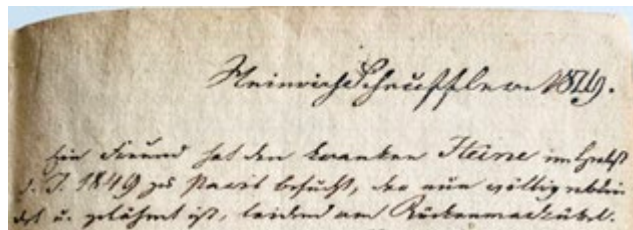 Heinrich Schüffler 1849.
Ein Freund hat den kranken Heine im Herbst
d. J. 1849 zu Paris besucht, der nun völlig erblin
det u. gelähmt ist, leidend am Rückenmarkübel.